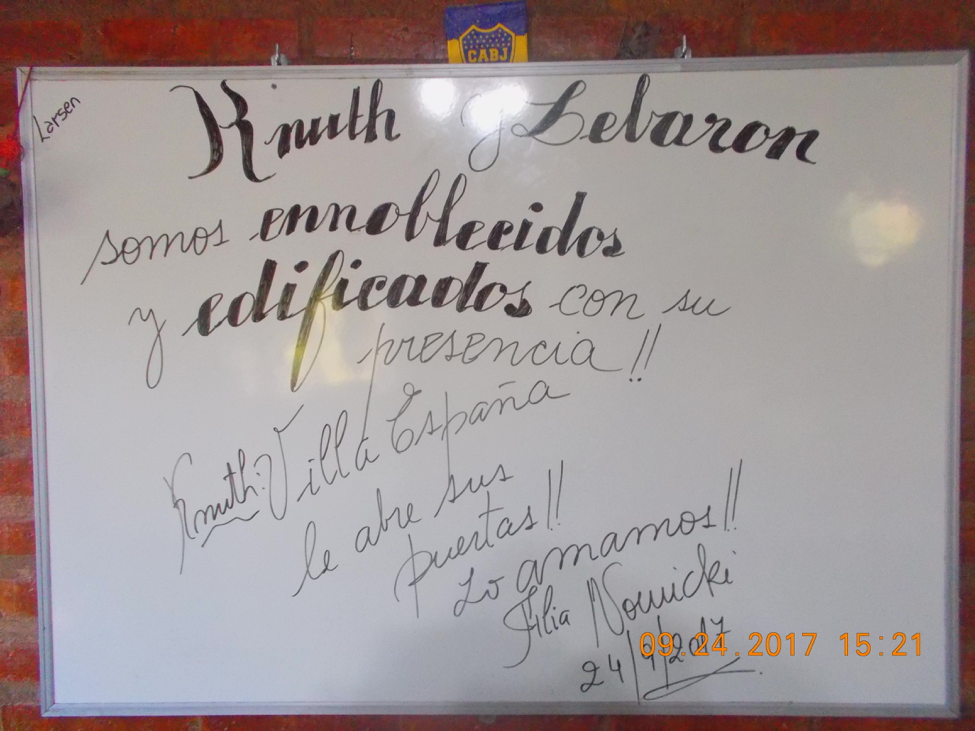 CABJ
Larsen
Knuth y Lebaron
somos ennoblecidos
y edificados con su
presencia!!
Knuth: Villa España
le abre sus
puertas!!
Lo amamos!!
Flia Nowicki
24/9/2017
09.24.2017 15:21